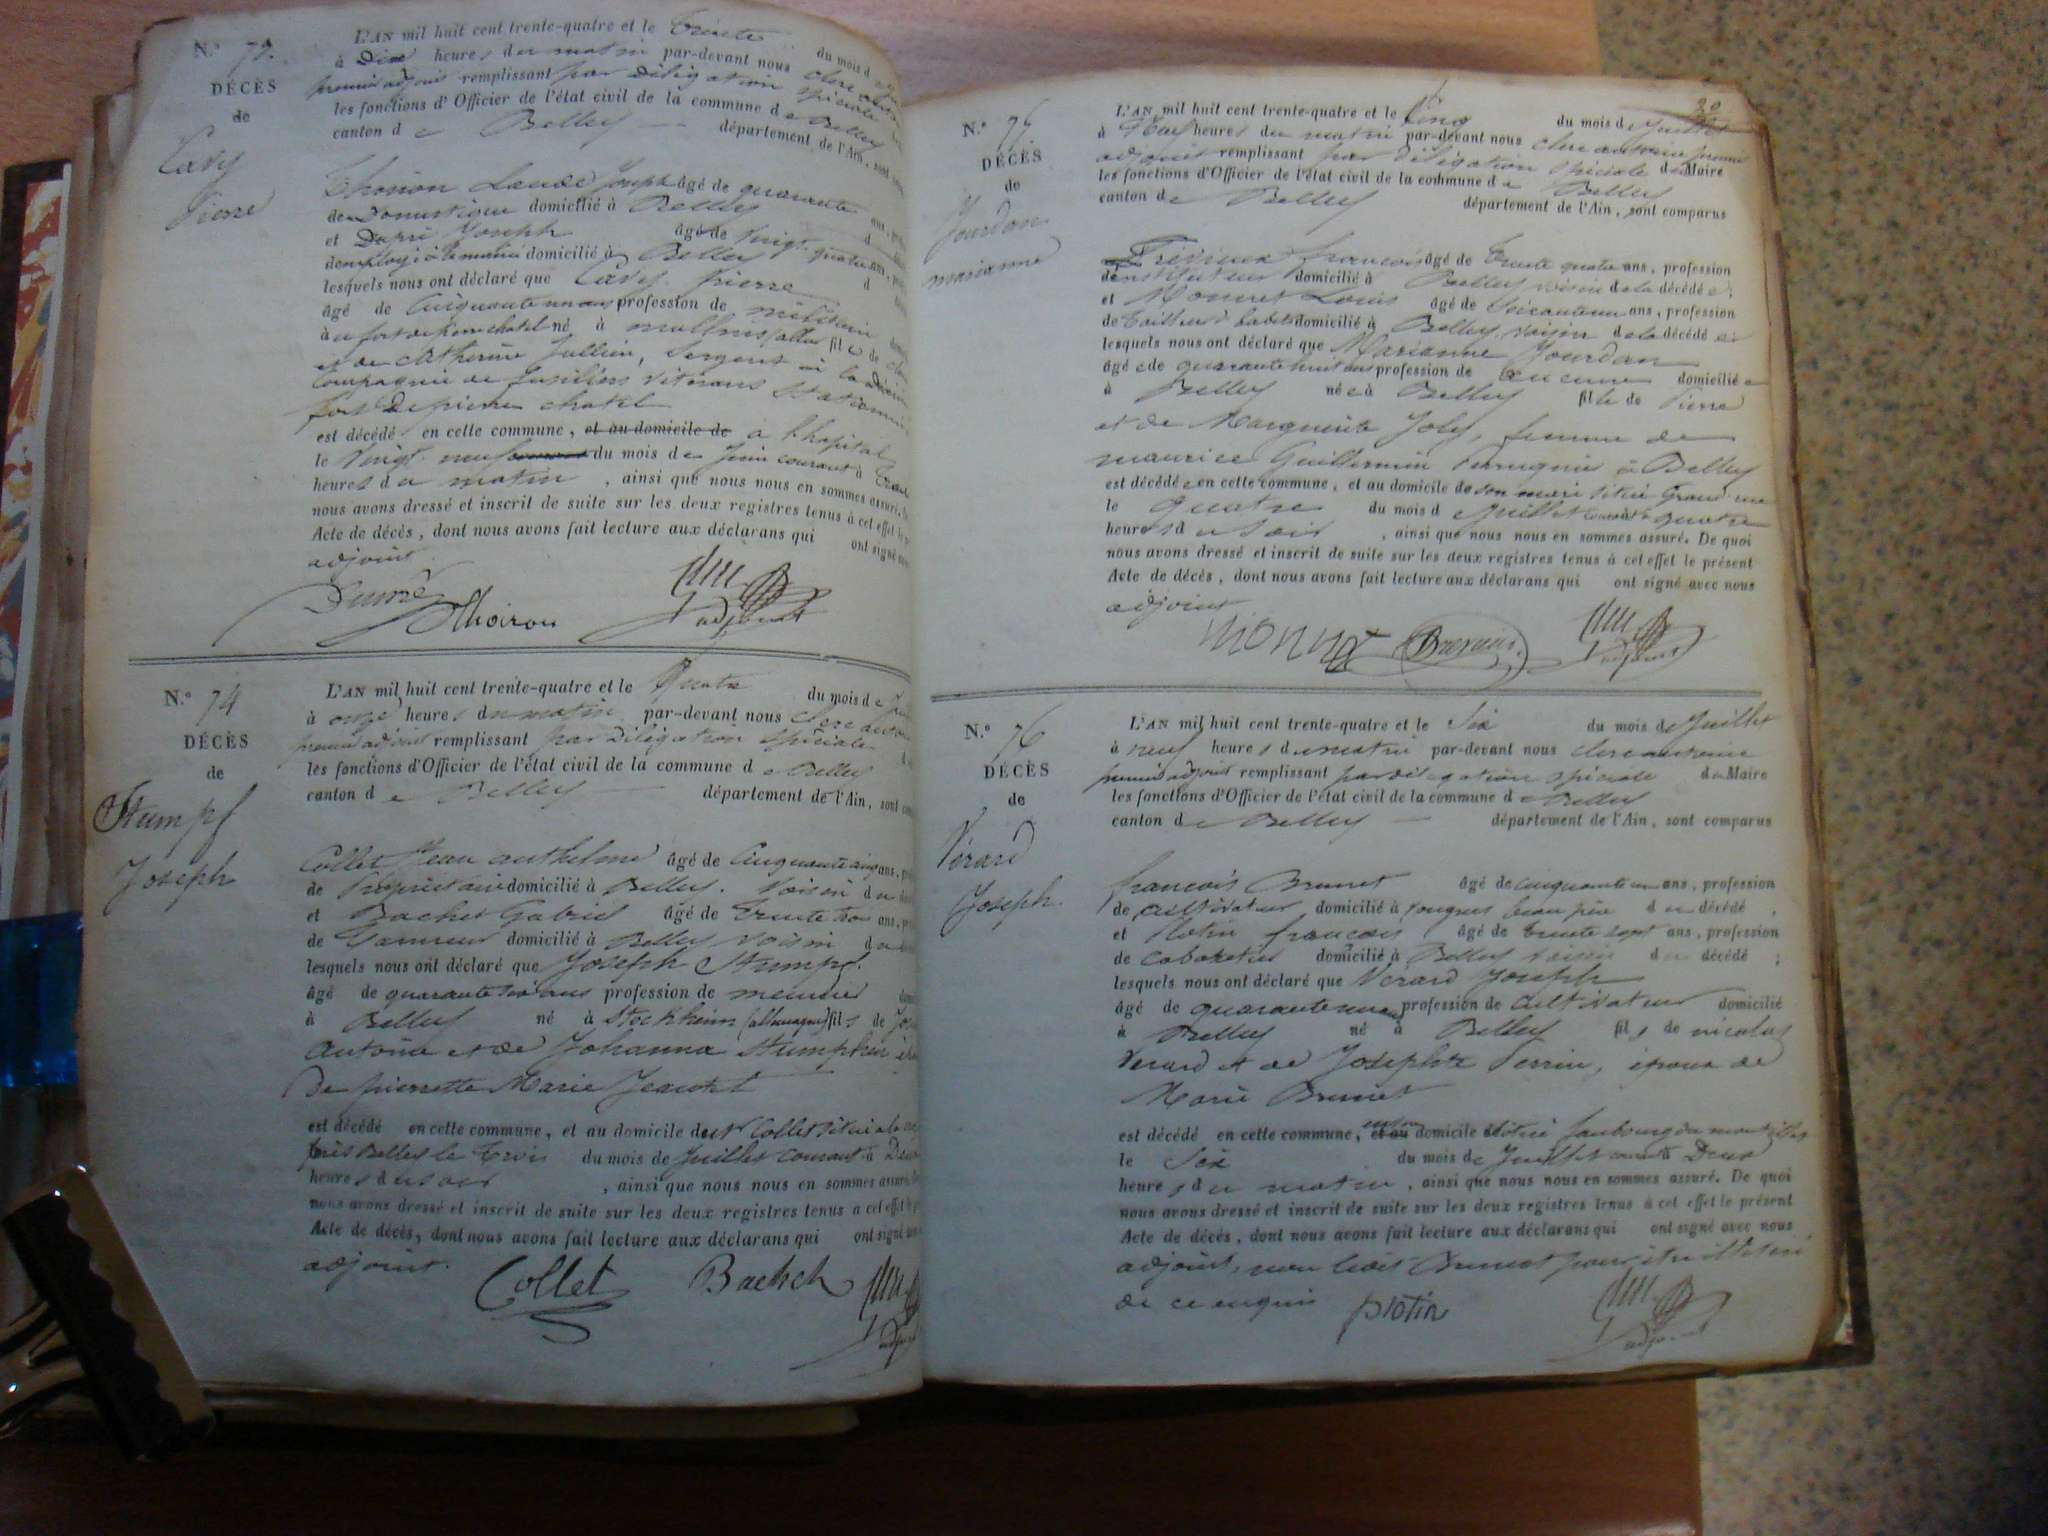 N.° 73.
DÉCÈS
de
Cavy
Pierre
L'AN mil huit cent trente-quatre et le trente du mois de
à Dix heures du matin par-devant nous Clerc
premier adjoint remplissant par délégation spéciale
les fonctions d'Officier de l'état civil de la commune de Belley
canton de Belley département de l'Ain, sont
Joseph âgé de quarante ans,
de Domestique domicilié à Belley
et Dupré Joseph âgé de vingt quatre ans,
d'employé à la mairie domicilié à Belley
lesquels nous ont déclaré que Cavy pierre
âgé de Cinquante un ans profession de militaire
au fort de pierre chatel né à fils de
et de Catherine Jullien, Sergent à la
Compagnie de fusiliers vétérans stationnée
fort de pierre chatel
est décédé en cette commune, et au domicile de a l'hopital
le vingt neuf du mois de Juin courant à
heures du matin, ainsi que nous nous en sommes assuré. De
nous avons dressé et inscrit de suite sur les deux registres tenus à cet effet le
Acte de décès, dont nous avons fait lecture aux déclarans qui ont signé avec
adjoint
Dupré Thoiron adjoint
N.° 74
DÉCÈS
de
Stumpf
Joseph
L'AN mil huit cent trente-quatre et le Quatre du mois de
à onze heures du matin par-devant nous Clerc antoine
premier adjoint remplissant par délégation spéciale
les fonctions d'Officier de l'état civil de la commune de Belley
canton de Belley département de l'Ain, sont
Collet Jean anthelme âgé de Cinquante cinq ans,
de Propriétaire domicilié à Belley. Voisin du
et Bachet Gabriel âgé de trente trois ans,
de Tanneur domicilié à Belley voisin du
lesquels nous ont déclaré que Joseph Stumpf.
âgé de quarante trois ans profession de meunier
à Belley né à Stockheim (allemagne) fils de
antoine et de Johanna Stumpf
De pierrette Marie
est décédé en cette commune, et au domicile du Sr Collet situé
près Belley le trois du mois de Juillet courant à Deux
heures du soir, ainsi que nous nous en sommes assuré.
nous avons dressé et inscrit de suite sur les deux registres tenus à cet effet le
Acte de décès, dont nous avons fait lecture aux déclarans qui ont signé avec
adjoint.
Collet Bachet
20
N.° 75
DÉCÈS
de
Jourdan
marianne
L'AN mil huit cent trente-quatre et le Cinq du mois de Juillet
à Neuf heures du matin par-devant nous Clerc antoine premier
adjoint remplissant par délégation spéciale du Maire
les fonctions d'Officier de l'état civil de la commune de Belley
canton de Belley département de l'Ain, sont comparus
françois âgé de trente quatre ans, profession
d'instituteur domicilié à Belley voisin de la décédée;
et Monnet Louis âgé de Soixante un ans, profession
de tailleur d'habits domicilié à Belley voisin de la décédée
lesquels nous ont déclaré que Marianne Jourdan
âgée de quarante huit ans profession de aucune domiciliée
à Belley née à Belley fille de Pierre
et de Marguerite Joly, femme de
maurice Guillermin perruquier à Belley
est décédée en cette commune, et au domicile de son mari situé Grand rue
le quatre du mois de Juillet courant à quatre
heures du soir, ainsi que nous nous en sommes assuré. De quoi
nous avons dressé et inscrit de suite sur les deux registres tenus à cet effet le présent
Acte de décès, dont nous avons fait lecture aux déclarans qui ont signé avec nous
adjoint
adjoint
N.° 76
DÉCÈS
de
Vérard
Joseph.
L'AN mil huit cent trente-quatre et le Six du mois de Juillet
à neuf heures du matin par-devant nous clerc antoine
premier adjoint remplissant par délégation spéciale du Maire
les fonctions d'Officier de l'état civil de la commune de Belley
canton de Belley département de l'Ain, sont comparus
françois Brunet âgé de cinquante un ans, profession
de cultivateur domicilié à beau père du décédé,
et Plotin françois âgé de trente sept ans, profession
de cabaretier domicilié à Belley voisin du décédé;
lesquels nous ont déclaré que Vérard Joseph
âgé de quarante un ans profession de cultivateur domicilié
à Belley né à Belley fils de nicolas
Vérard et de Josephte Perrin, époux de
Marie Brunet
est décédé en cette commune, et au domicile situé faubourg du
le Six du mois de Juillet courant à Deux
heures du matin, ainsi que nous nous en sommes assuré. De quoi
nous avons dressé et inscrit de suite sur les deux registres tenus à cet effet le présent
Acte de décès, dont nous avons fait lecture aux déclarans qui ont signé avec nous
adjoint, non ledit Brunet pour être illitéré
de ce enquis plotin